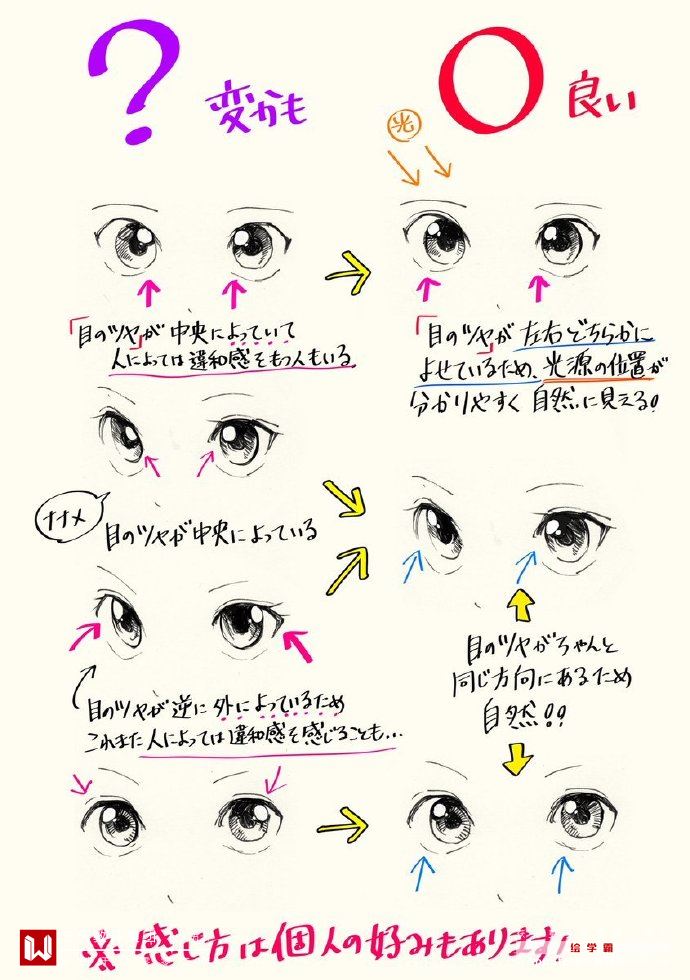 ? 変かも
○ 良い
光
「目のツヤ」が中央によっていて
人によっては違和感をもつ人もいる
「目のツヤ」が左右どちらかに
よせているため、光源の位置が
分かりやすく自然に見える!
ナナメ
目のツヤが中央によっている
目のツヤがちゃんと
同じ方向にあるため
自然!!
目のツヤが逆に外によっているため
これまた人によっては違和感を感じることも…
※感じ方は個人の好みもあります!
绘学霸